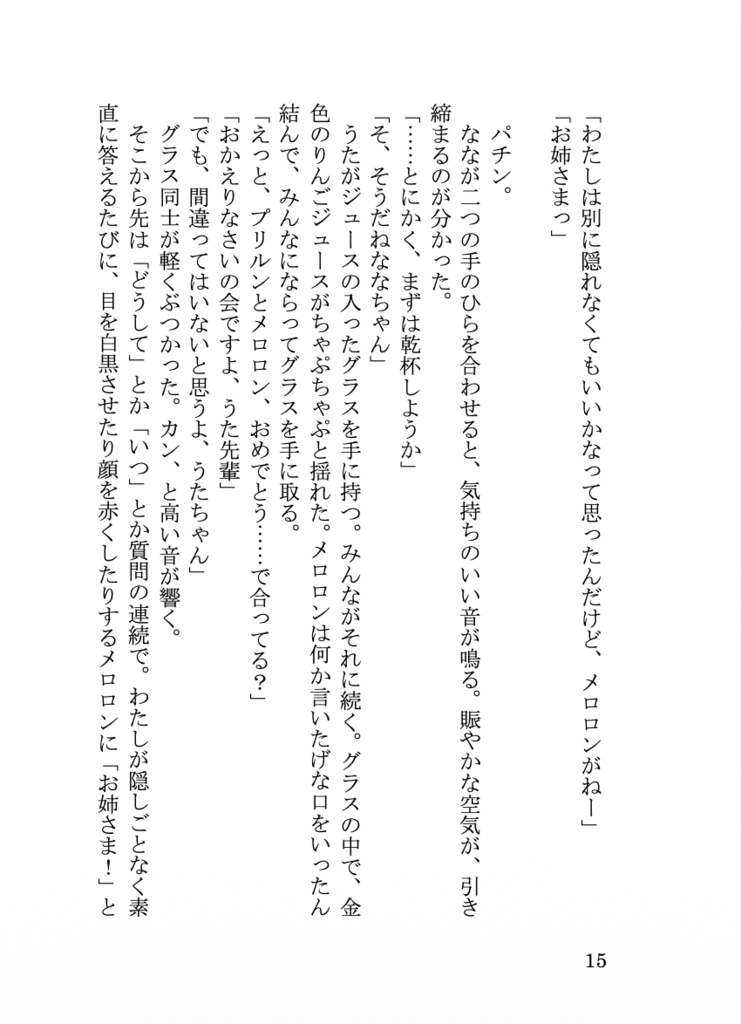 「わたしは別に隠れなくてもいいかなって思ったんだけど、メロロンがねー」
「お姉さまっ」
パチン。
ななが二つの手のひらを合わせると、気持ちのいい音が鳴る。賑やかな空気が、引き
締まるのが分かった。
「……とにかく、まずは乾杯しようか」
「そ、そうだねななちゃん」
うたがジュースの入ったグラスを手に持つ。みんながそれに続く。グラスの中で、金
色のりんごジュースがちゃぷちゃぷと揺れた。メロロンは何か言いたげな口をいったん
結んで、みんなにならってグラスを手に取る。
「えっと、プリルンとメロロン、おめでとう……で合ってる？」
「おかえりなさいの会ですよ、うた先輩」
「でも、間違ってはいないと思うよ、うたちゃん」
グラス同士が軽くぶつかった。カン、と高い音が響く。
そこから先は「どうして」とか「いつ」とか質問の連続で。わたしが隠しごとなく素
直に答えるたびに、目を白黒させたり顔を赤くしたりするメロロンに「お姉さま！」と
15